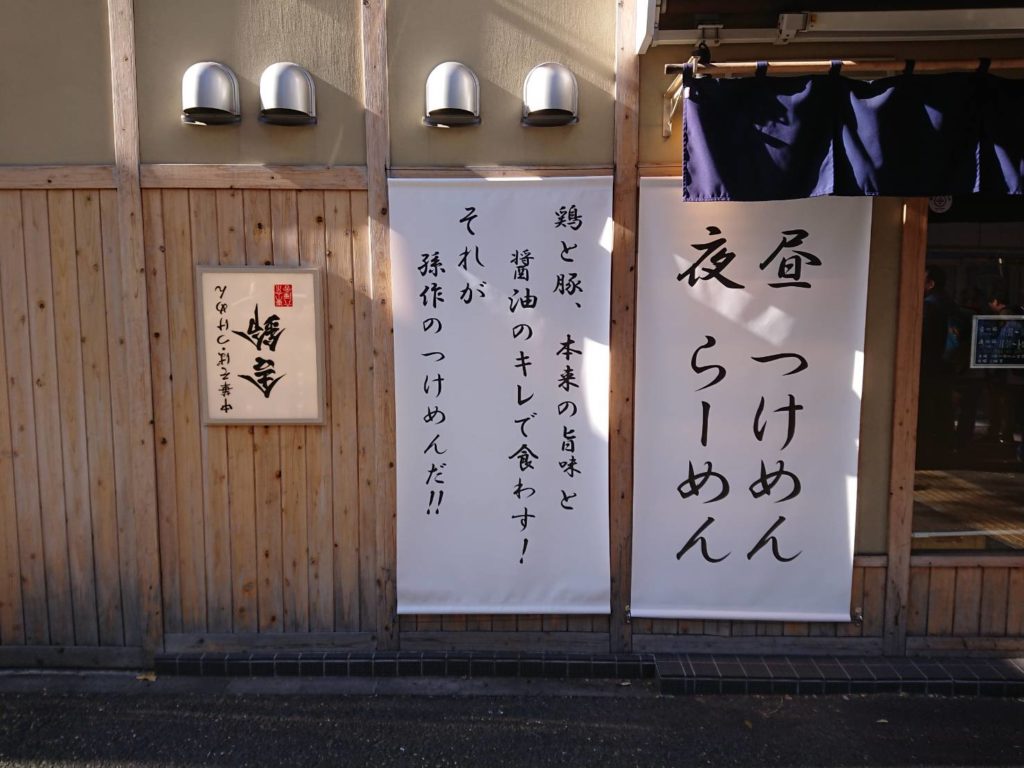 昼 つけめん
夜 らーめん
鶏と豚、本来の旨味と
醤油のキレで食わす！
それが
孫作のつけめんだ!!
舎鈴
中華そば・つけめん